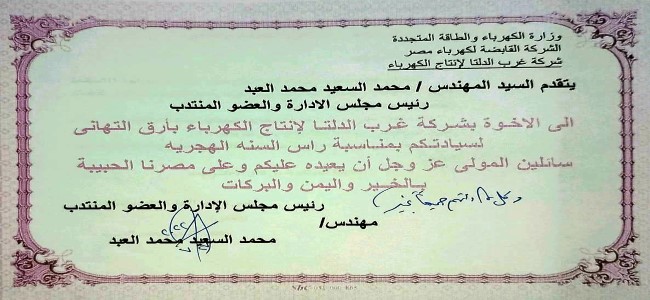 وزارة الكهرباء والطاقة المتجددة
الشركة القابضة لكهرباء مصر
شركة غرب الدلتا لإنتاج الكهرباء
يتقدم السيد المهندس / محمد السعيد محمد العبد
رئيس مجلس الادارة والعضو المنتدب
الى الاخوة بشركة غرب الدلتا لإنتاج الكهرباء بأرق التهانى
لسيادتكم بمناسبة راس السنه الهجريه
سائلين المولى عز وجل أن يعيده عليكم وعلى مصرنا الحبيبة
بالخير واليمن والبركات
وكل عام وانتم جميعا بخير
رئيس مجلس الإدارة والعضو المنتدب
مهندس/
محمد السعيد محمد العبد